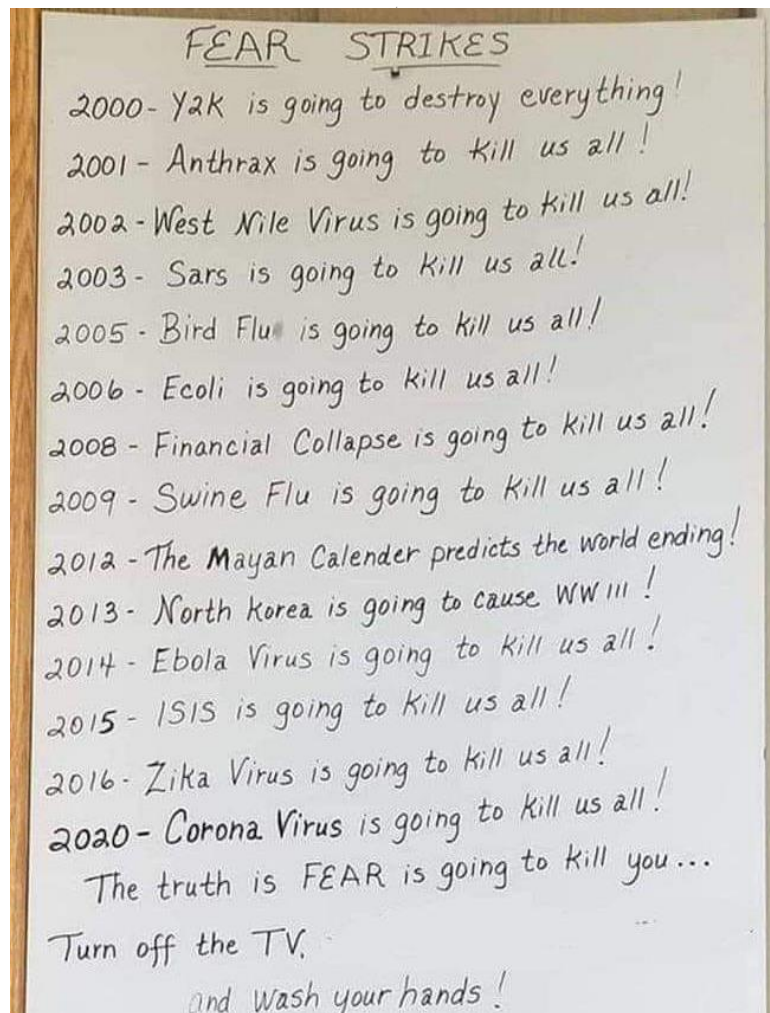 FEAR STRIKES
2000- Y2K is going to destroy everything!
2001 - Anthrax is going to kill us all!
2002 - West Nile Virus is going to kill us all!
2003 - Sars is going to kill us all!
2005 - Bird Flu is going to kill us all!
2006 - Ecoli is going to kill us all!
2008 - Financial Collapse is going to kill us all!
2009 - Swine Flu is going to kill us all!
2012 - The Mayan Calender predicts the world ending!
2013 - North Korea is going to cause WW III!
2014 - Ebola Virus is going to kill us all!
2015 - ISIS is going to kill us all!
2016 - Zika Virus is going to kill us all!
2020 - Corona Virus is going to kill us all!
The truth is FEAR is going to kill you...
Turn off the TV.
and wash your hands!